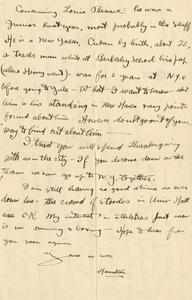 Concerning Louis Besant: he was a
Junior last year, most probably in the stuff
He is a New Yorker, Cuban by birth, about 22,
a track man while at Berkeley School his prep
(where Henry went). was for a year at N.Y.U
before going to Yale - What I want to know about
him is his standing in New Haven vary points
found about him. However do not go out of your
way to find out about him
I trust you will spend Thanksgiving
with us in the city - If you become down on the
team we can go up to N.Y. together.
I am still having as good a time as ever
down here - the crowd of
are OK My interest in athletics just now
is in running & boxing - Hope to hear from
you soon again
Yours as ever
Hamilton